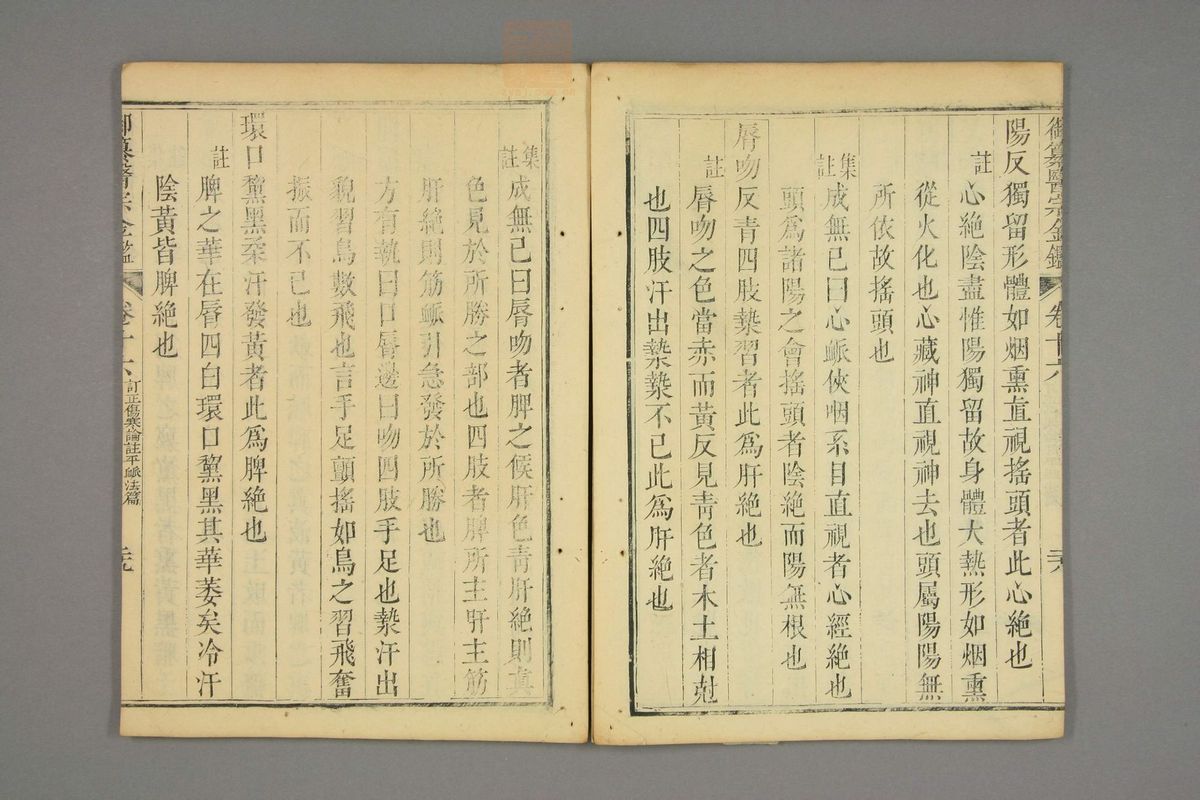 御纂醫宗金鑑 卷十六 三六
陽反獨留形體如烟熏直視搖頭者此心絶也
註 心絶陰盡惟陽獨留故身體大熱形如烟熏
從火化也心藏神直視神去也頭屬陽陽無
所依故搖頭也
集註 成無已曰心脈俠咽系目直視者心經絶也
頭爲諸陽之會搖頭者陰絶而陽無根也
唇吻反青四肢漐習者此爲肝絶也
註 唇吻之色當赤而黃反見青色者木土相尅
也四肢汗出漐漐不已此爲肝絶也
集註 成無已曰唇吻者脾之候肝色青肝絶則眞
色見於所勝之部也四肢者脾所主肝主筋
肝絶則筋脈引急發於所勝也
方有執曰口唇邊曰吻四肢手足也漐汗出
貌習鳥數飛也言手足顫搖如鳥之習飛奮
振而不已也
環口黧黑柔汗發黃者此爲脾絶也
註 脾之華在唇四白環口黧黑其華萎矣冷汗
陰黃皆脾絶也
御纂醫宗金鑑 卷十六 訂正傷寒論註平脈法篇